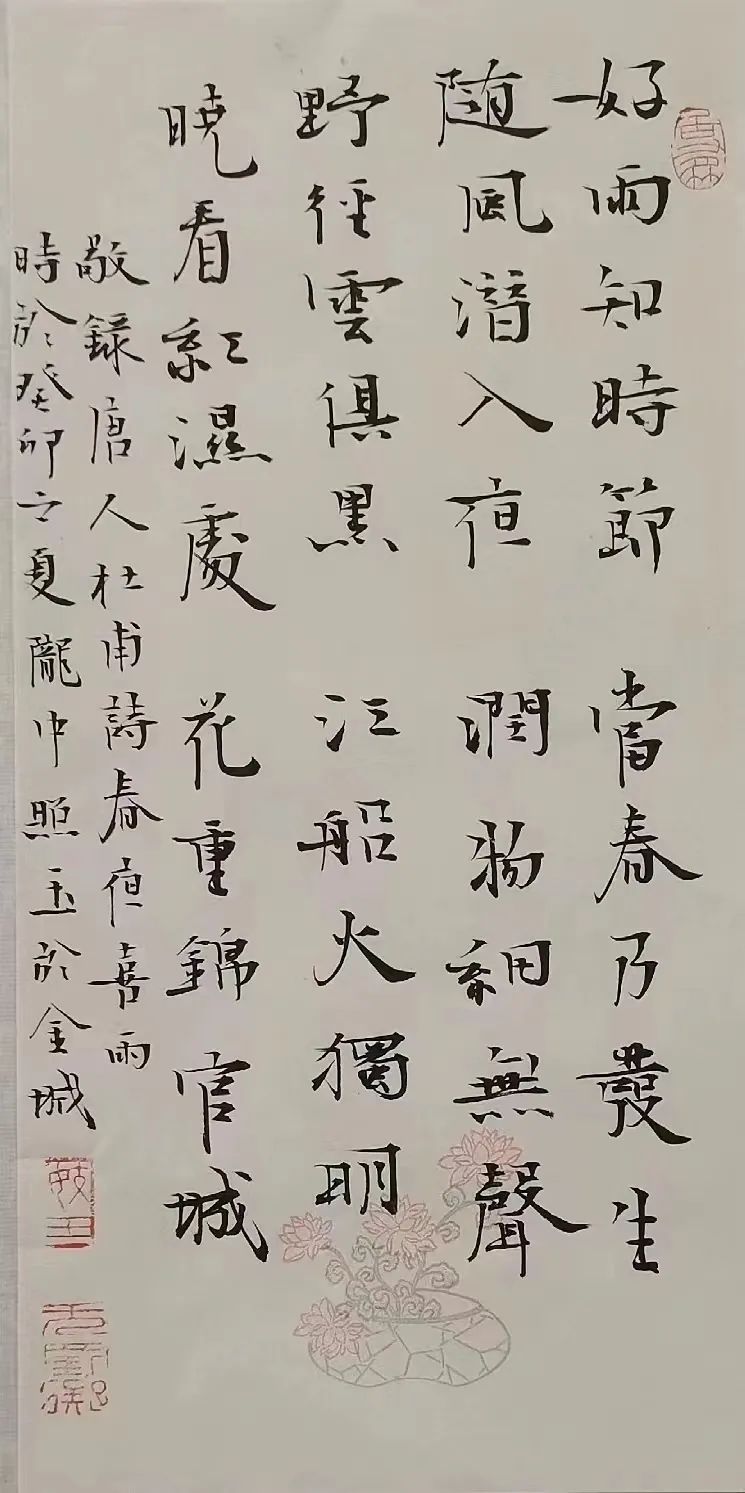 好雨知時節 當春乃發生
随風潛入夜 潤物細無聲
野徑雲俱黑 江船火獨明
曉看紅濕處 花重錦官城
敬錄唐人杜甫詩春夜喜雨
時於癸卯之夏隴中照玉於金城